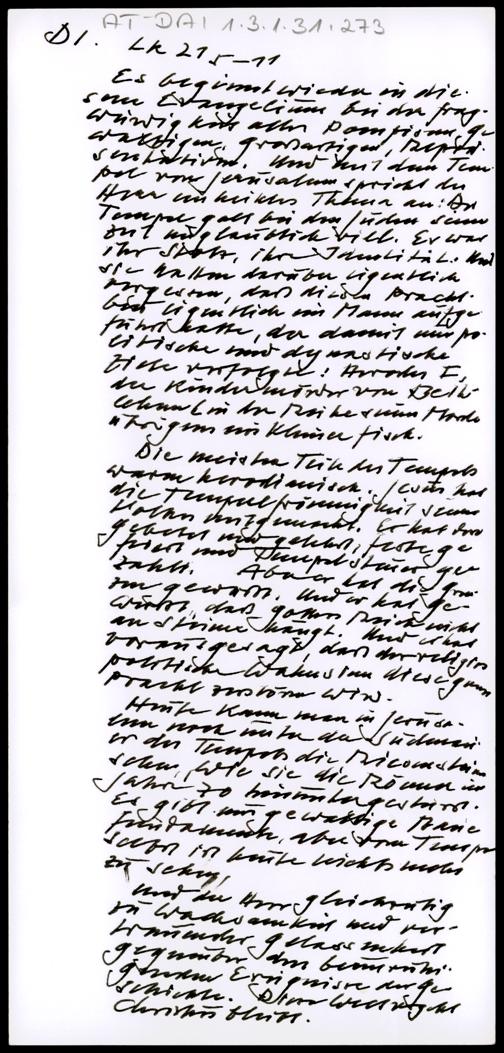 AT-DAI 1.3.1.31.273
DI. Lk 21 5-11
Es beginnt wieder in die-
sem Evangelium bei der frag-
würdigkeit alles Pompösen, Ge-
waltigen, Großartigen, Reprä-
sentativen. Und mit dem Tem-
pel von Jerusalem spricht der
Herr ein heikles Thema an: Der
Tempel galt bei den Juden seiner
Zeit unglaublich viel. Er war
ihr Stolz, ihre Identität. Und
sie hatten darüber eigentlich
vergessen, daß diesen Pracht-
bau eigentlich ein Mann aufge-
führt hatte, der damit nur po-
litische und dynastische
Ziele verfolgte: Herodes I,
der Kindermörder von Beth-
lehem in der Reihe seiner Morde
übrigens ein kleiner Fisch.
Die meisten Teile des Tempels
waren herodianisch. Jesus hat
die Tempelfrömmigkeit seines
Volkes mitgemacht. Er hat dort
gebetet und gelehrt, feste ge
feiert und Tempelsteuer ge-
zahlt. Aber er hat die
gewarnt. Und er hat ge-
wußt, daß Gottes Reich nicht
an Steinen hängt. Und er hat
vorausgesagt, daß der religiös
politische Wahnsinn diese ganze
pracht zerstören wird.
Heute kann man in Jerusa-
lem noch unter der Südmau-
er des Tempels die Riesensteine
sehen, wie sie die Römer im
Jahre 70 hinuntergestürzt.
Es gibt nur gewaltige Mauer
fundamente, aber vom Tempel
selbst ist heute nichts mehr
zu sehen.
Und der Herr gleichzeitig
zu Wachsamkeit und ver-
trauender Gelassenheit
gegenüber den beunruhi-
genden Ereignisse der Ge-
schichte. Diese Welt vergeht
Christus bleibt.